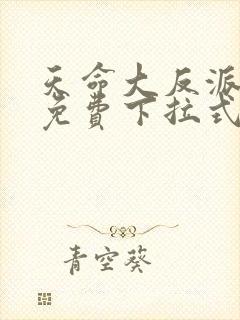 天命大反派
免费下拉式
青空葵